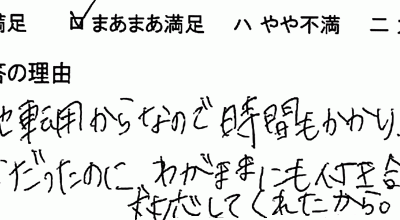 満足 ロ まあまあ満足 ハ やや不満 ニ
答の理由
転用からなので時間もかかり、
だったのに、わがままにも付き合
対応してくれたから。